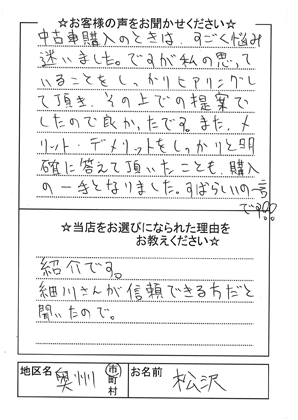 ☆お客様の声をお聞かせください☆
中古車購入のときは、すごく悩み
迷いました。ですが私の思って
いることをしっかりヒアリングし
て頂き、その上での提案で
したので良かったです。また、メ
リット・デメリットをしっかりと明
確に答えて頂いたことも、購入
の一手となりました。すばらしいの一言
です!!
☆当店をお選びになられた理由を
お教えください☆
紹介です。
細川さんが信頼できる方だと
聞いたので。
地区名 奥州 市町村 お名前 松沢